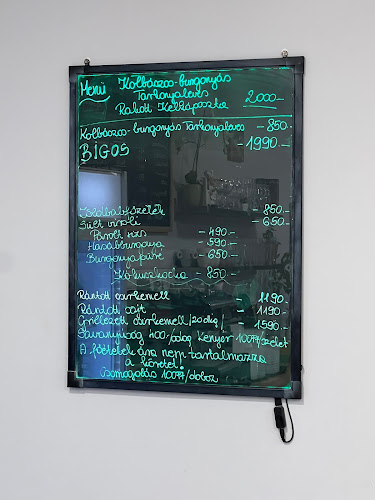 Menü Kolbászos-burgonyás
Tarhonyaleves
Rakott Kelkáposzta 2.000.-
Kolbászos-burgonyás Tarhonyaleves - 850.-
BIGOS - 1990.-
Zöldbabfőzelék - 850.-
Sült virsli - 650.-
Párolt rizs - 490.-
Hasábburgonya - 590.-
Burgonyapüré - 650.-
Kókuszkocka - 850.-
Rántott csirkemell 1190.-
Rántott sajt - 1190.-
Grillezett csirkemell /20dkg/ - 1590.-
Savanyúság 400.-/adag Kenyér 100Ft/szelet
A főételek ára nem tartalmazza
a köretet!
Csomagolás 100Ft/doboz